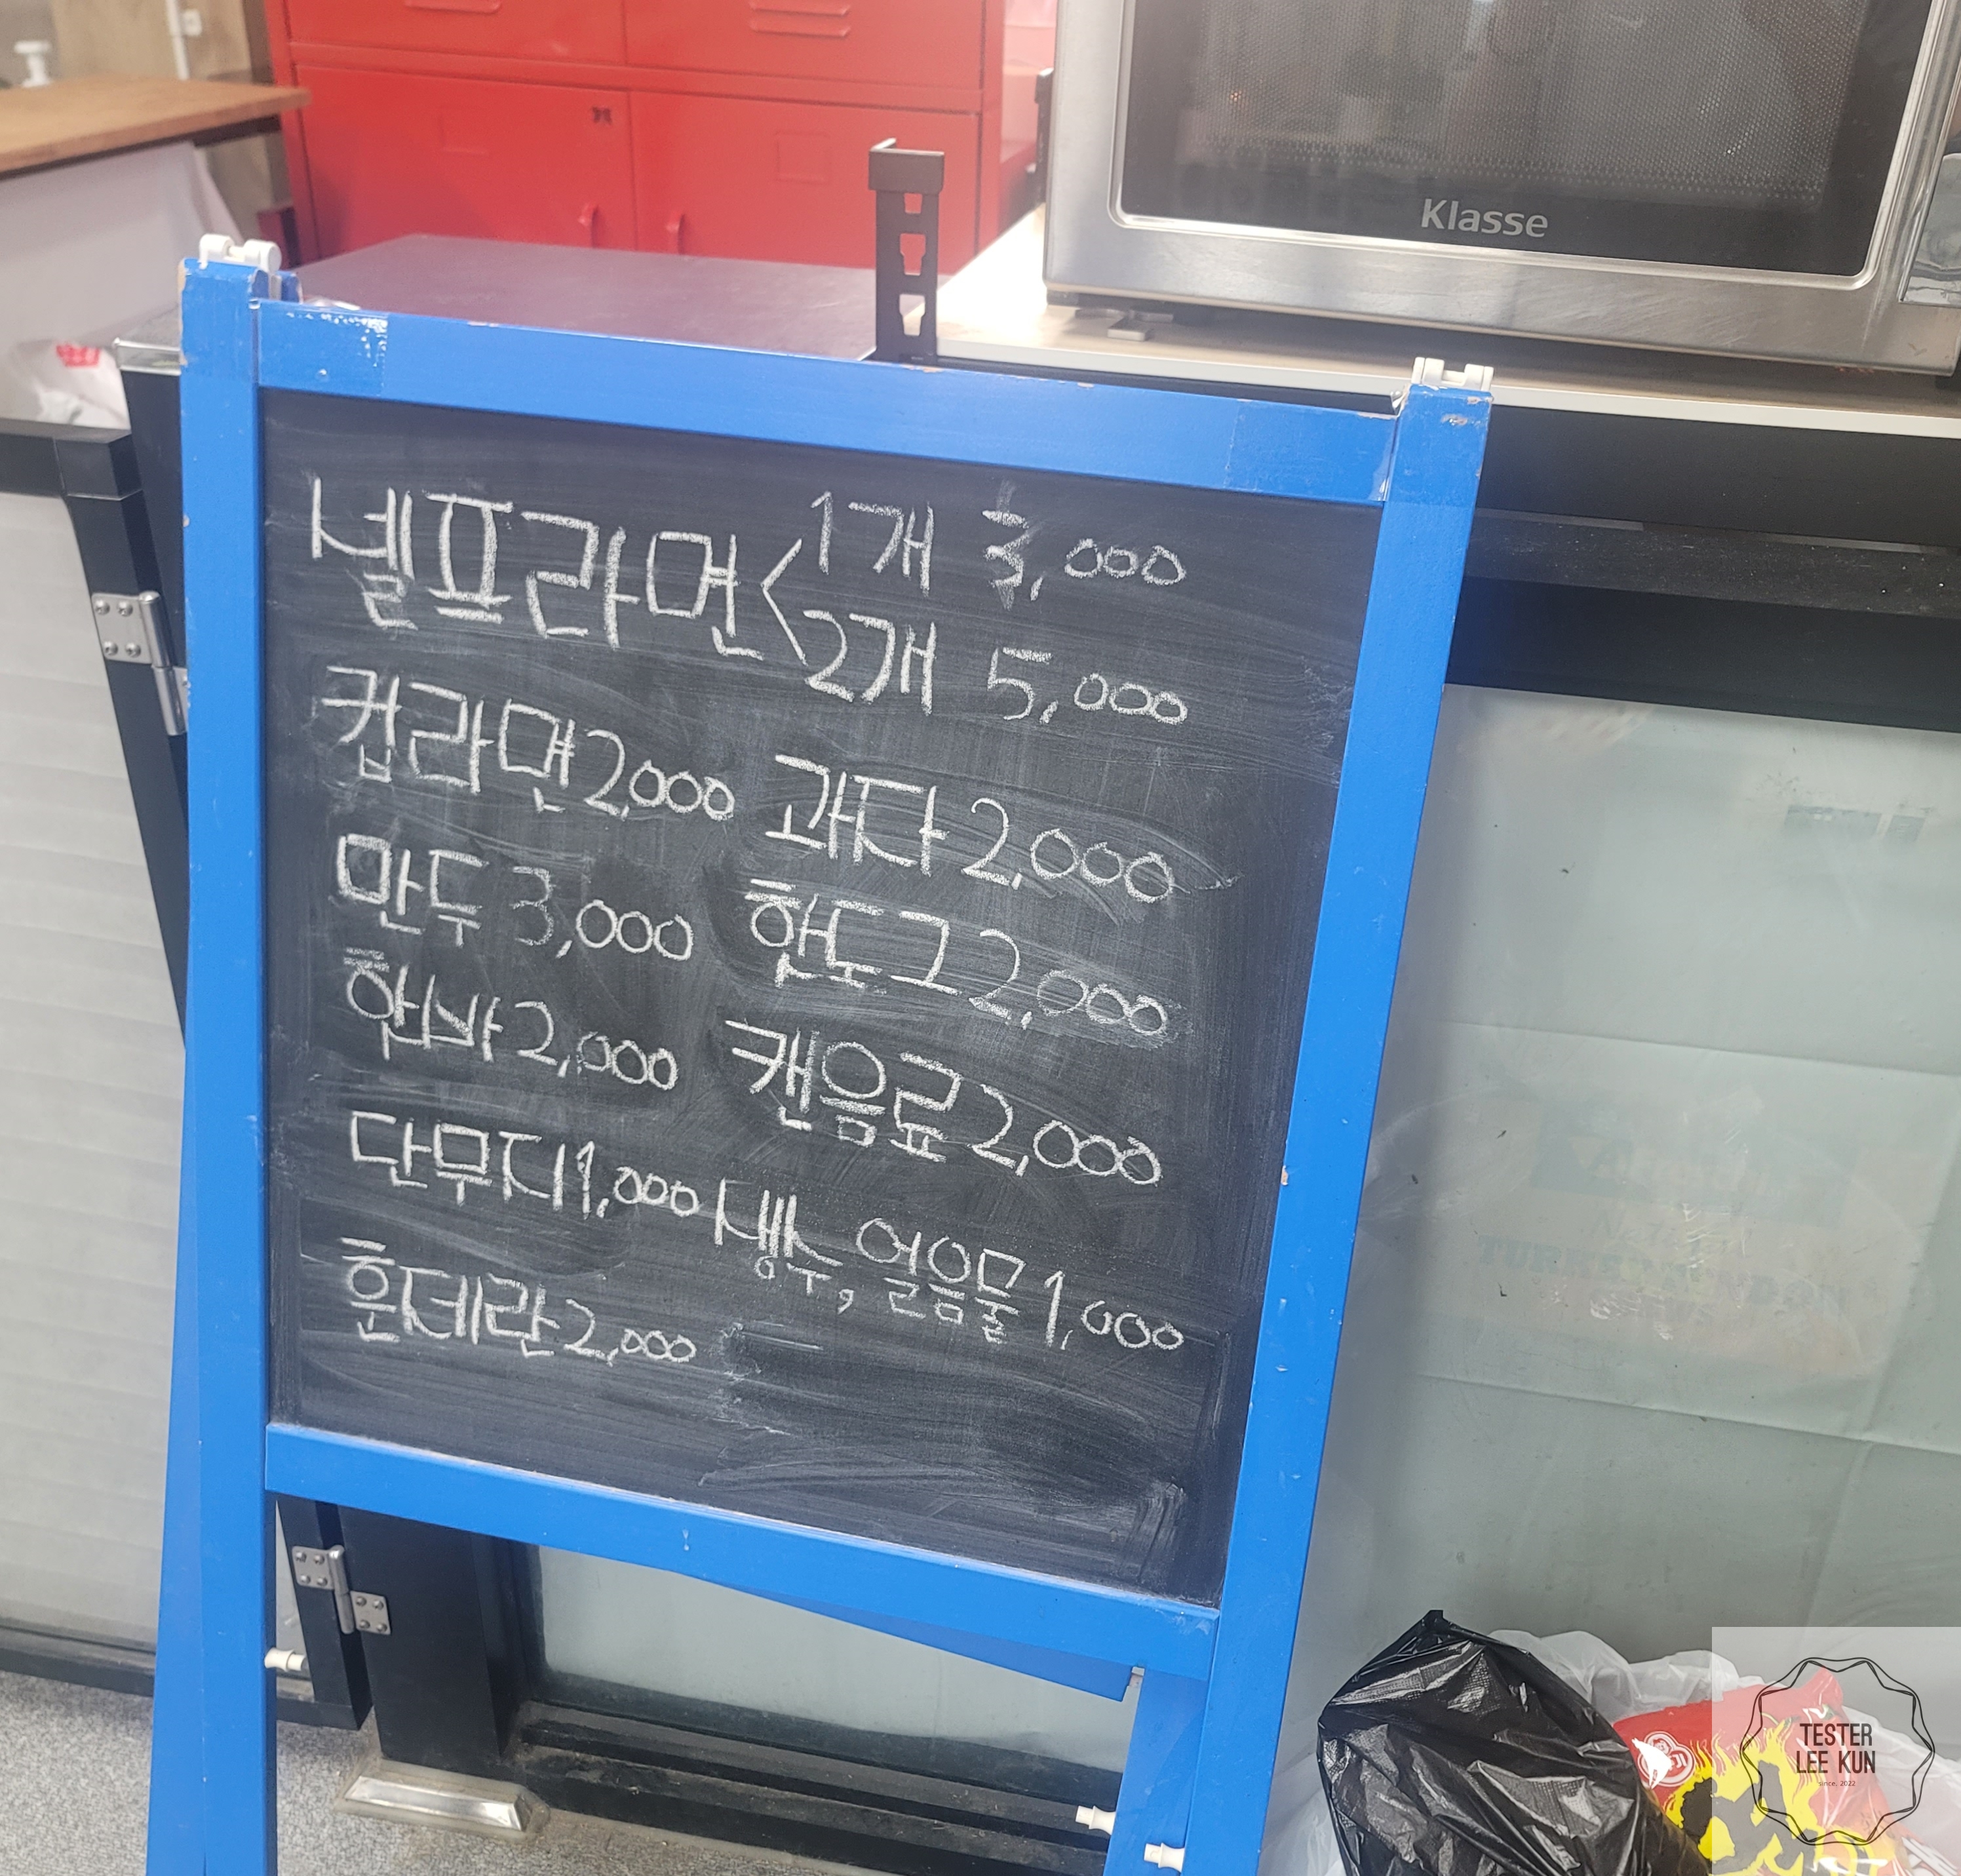 Klasse
셀프라면 < 1개 3,000
2개 5,000
컵라면 2,000 과자 2,000
만두 3,000 핫도그 2,000
햇반 2,000 캔음료 2,000
단무지 1,000 생수, 얼음물 1,000
훈제란 2,000
TESTER
LEE KUN
since, 2022